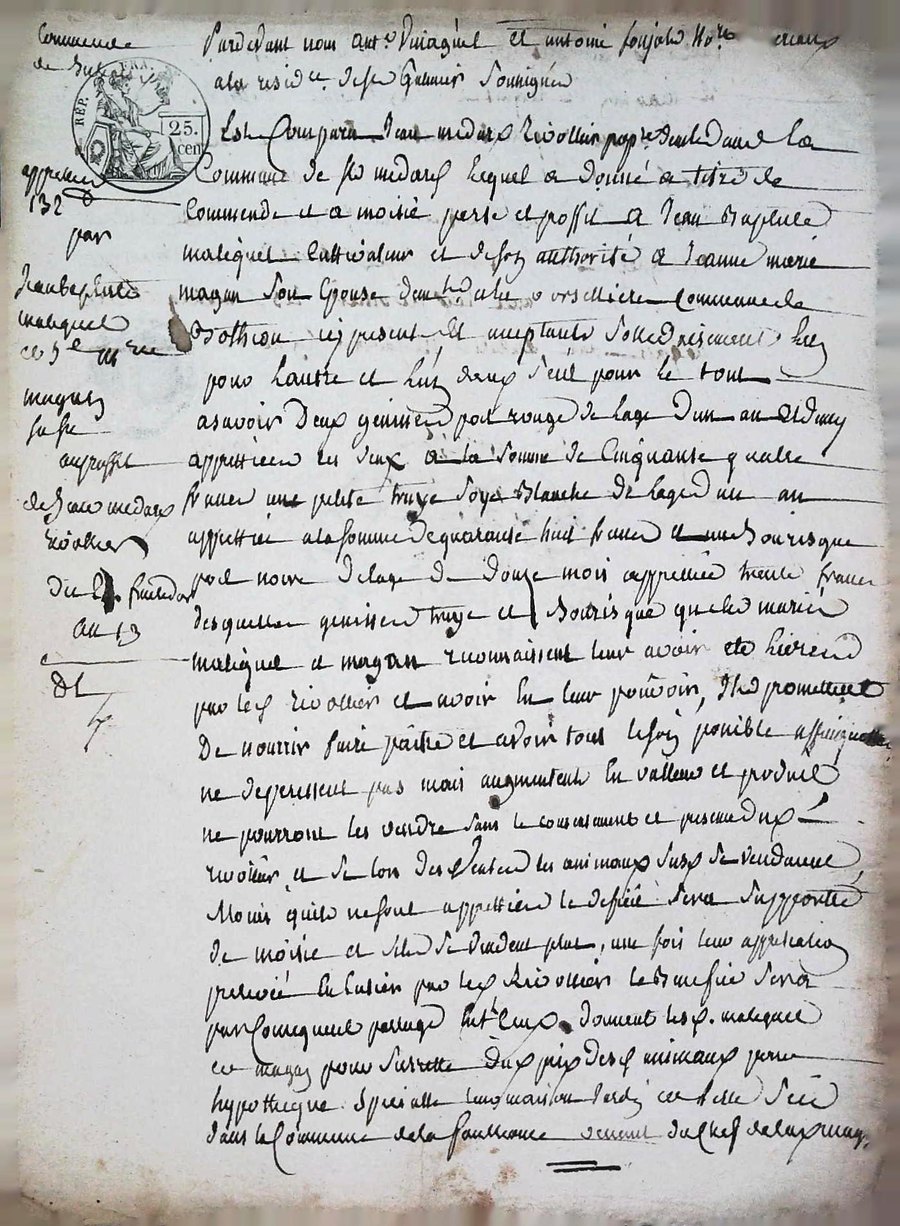 Commende
de
REP. FRA.
25.
cen
appretiée
132
par
Jean Baptiste
maliquet
et
magan
sa fe
au proffit
de Jean medard
rivollier
Du fructidor
an 13
Pardevant nous ant. et antoine No.res
a la resid.ce de st Galmier Soussignés
Est Comparu Jean medard Rivollier prop.re dem.t dans la
Commune de St medard lequel a donné a titre de
Commende et a moitié perte et proffit a Jean Baptiste
maliquet Cultivateur et de son authorité a Jeanne marie
magan Son Epouse Commune de
cy present et acceptants l'un
pour l'autre et l'un d'eux seul pour le tout
asavoir Deux genisses poil rouge de l'age d'un an et demy
apprettiées les deux a la Somme de Cinquante quatre
francs une petite truye Soye Blanche de l'age d'un an
apprettiée a la somme de quarante huit francs et une Bourisque
poil noire de l'age de douze mois appretiée trente francs
desquelles genisses truye et Bourisque que les mariés
maliquet et magan reconnaissent leur avoir été livrés
par led. rivollier et avoir en leur pouvoir, Ils promettent
De nourrir faire paitre et avoir tous le soin possible affin qu'elles
ne deperissent pas mais augmentent En valleur et produit
ne pourront les vendre sans le consentement et presence dud.
rivollier, et Si lors des Ventes les animaux susd. Se vendaient
Moins qu'ils ne sont apprettiés le deficit Sera Supporté
de moitié et s'ils Se vendent plus, une fois leur appretiation
prelevée En Entier par led. Rivollier le Benefice Sera
par Consequent partagé Ent. Eux. Donnent lesd. maliquet
et magan pour Surette Dud. prix desd. animaux
hypotheque Speciale maison Jardin
dans la Commune de la fouillouse venant du Chef de lad. mag.